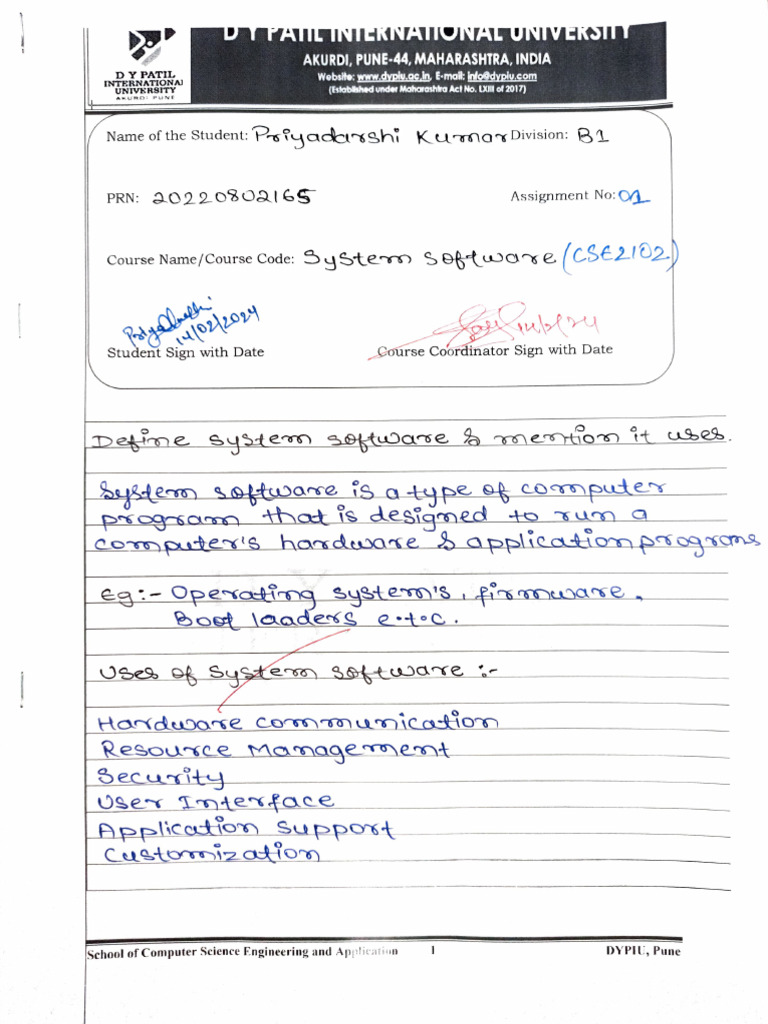 D Y PATIL INTERNATIONAL UNIVERSITY
AKURDI, PUNE-44, MAHARASHTRA, INDIA
Website: www.dypiu.ac.in, E-mail: info@dypiu.com
(Established under Maharashtra Act No. LXIII of 2017)
D Y PATIL
INTERNATIONAL
UNIVERSITY
AKURDI PUNE
Name of the Student: Priyadarshi Kumar Division: B1
PRN: 20220802165 Assignment No: 01
Course Name/Course Code: System Software (CSE2102)
14/02/2024
Student Sign with Date Course Coordinator Sign with Date
Define system software & mention it uses.
System software is a type of computer
program that is designed to run a
computer's hardware & application programs
Eg:- Operating system's, firmware,
Boot loaders e.t.c.
Uses of System software :-
Hardware communication
Resource Management
Security
User Interface
Application Support
Customization
School of Computer Science Engineering and Application 1 DYPIU, Pune